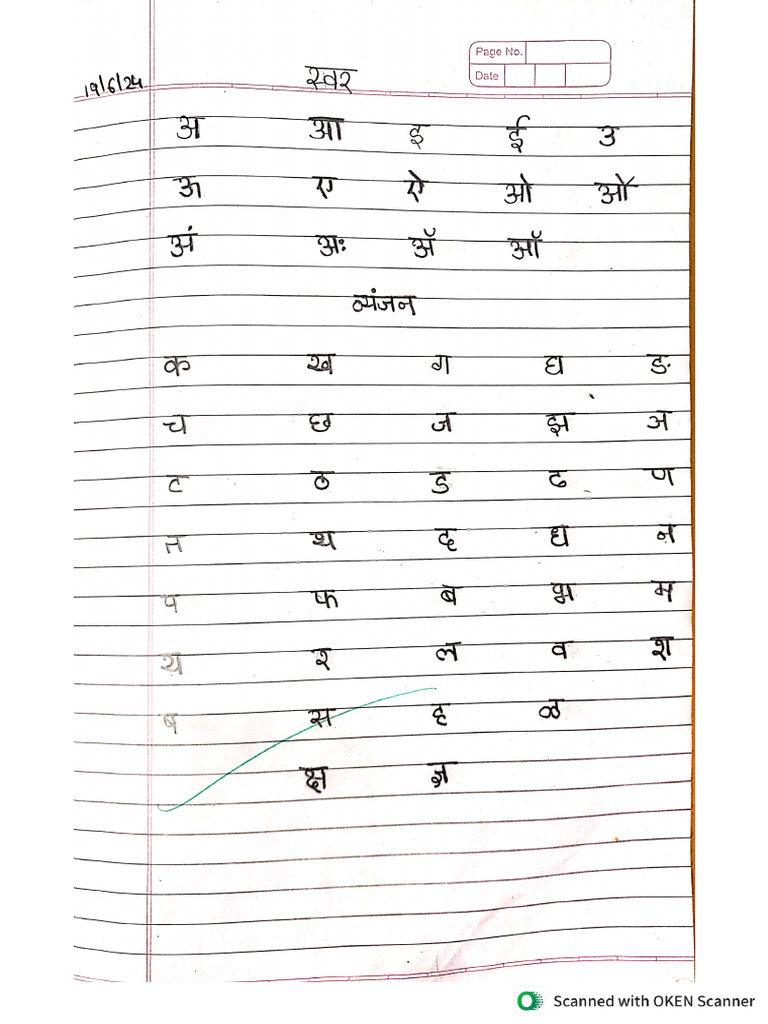 Page No.
स्वर
19/6/24
Date
अ आ इ ई उ
ऊ ए ऐ ओ औ
अं अः ॲ ऑ
व्यंजन
क ख ग घ ङ
च छ ज झ ञ
ट ठ ड ढ ण
त थ द ध न
प फ ब भ म
य र ल व श
ष स ह ळ
क्ष ज्ञ
Scanned with OKEN Scanner